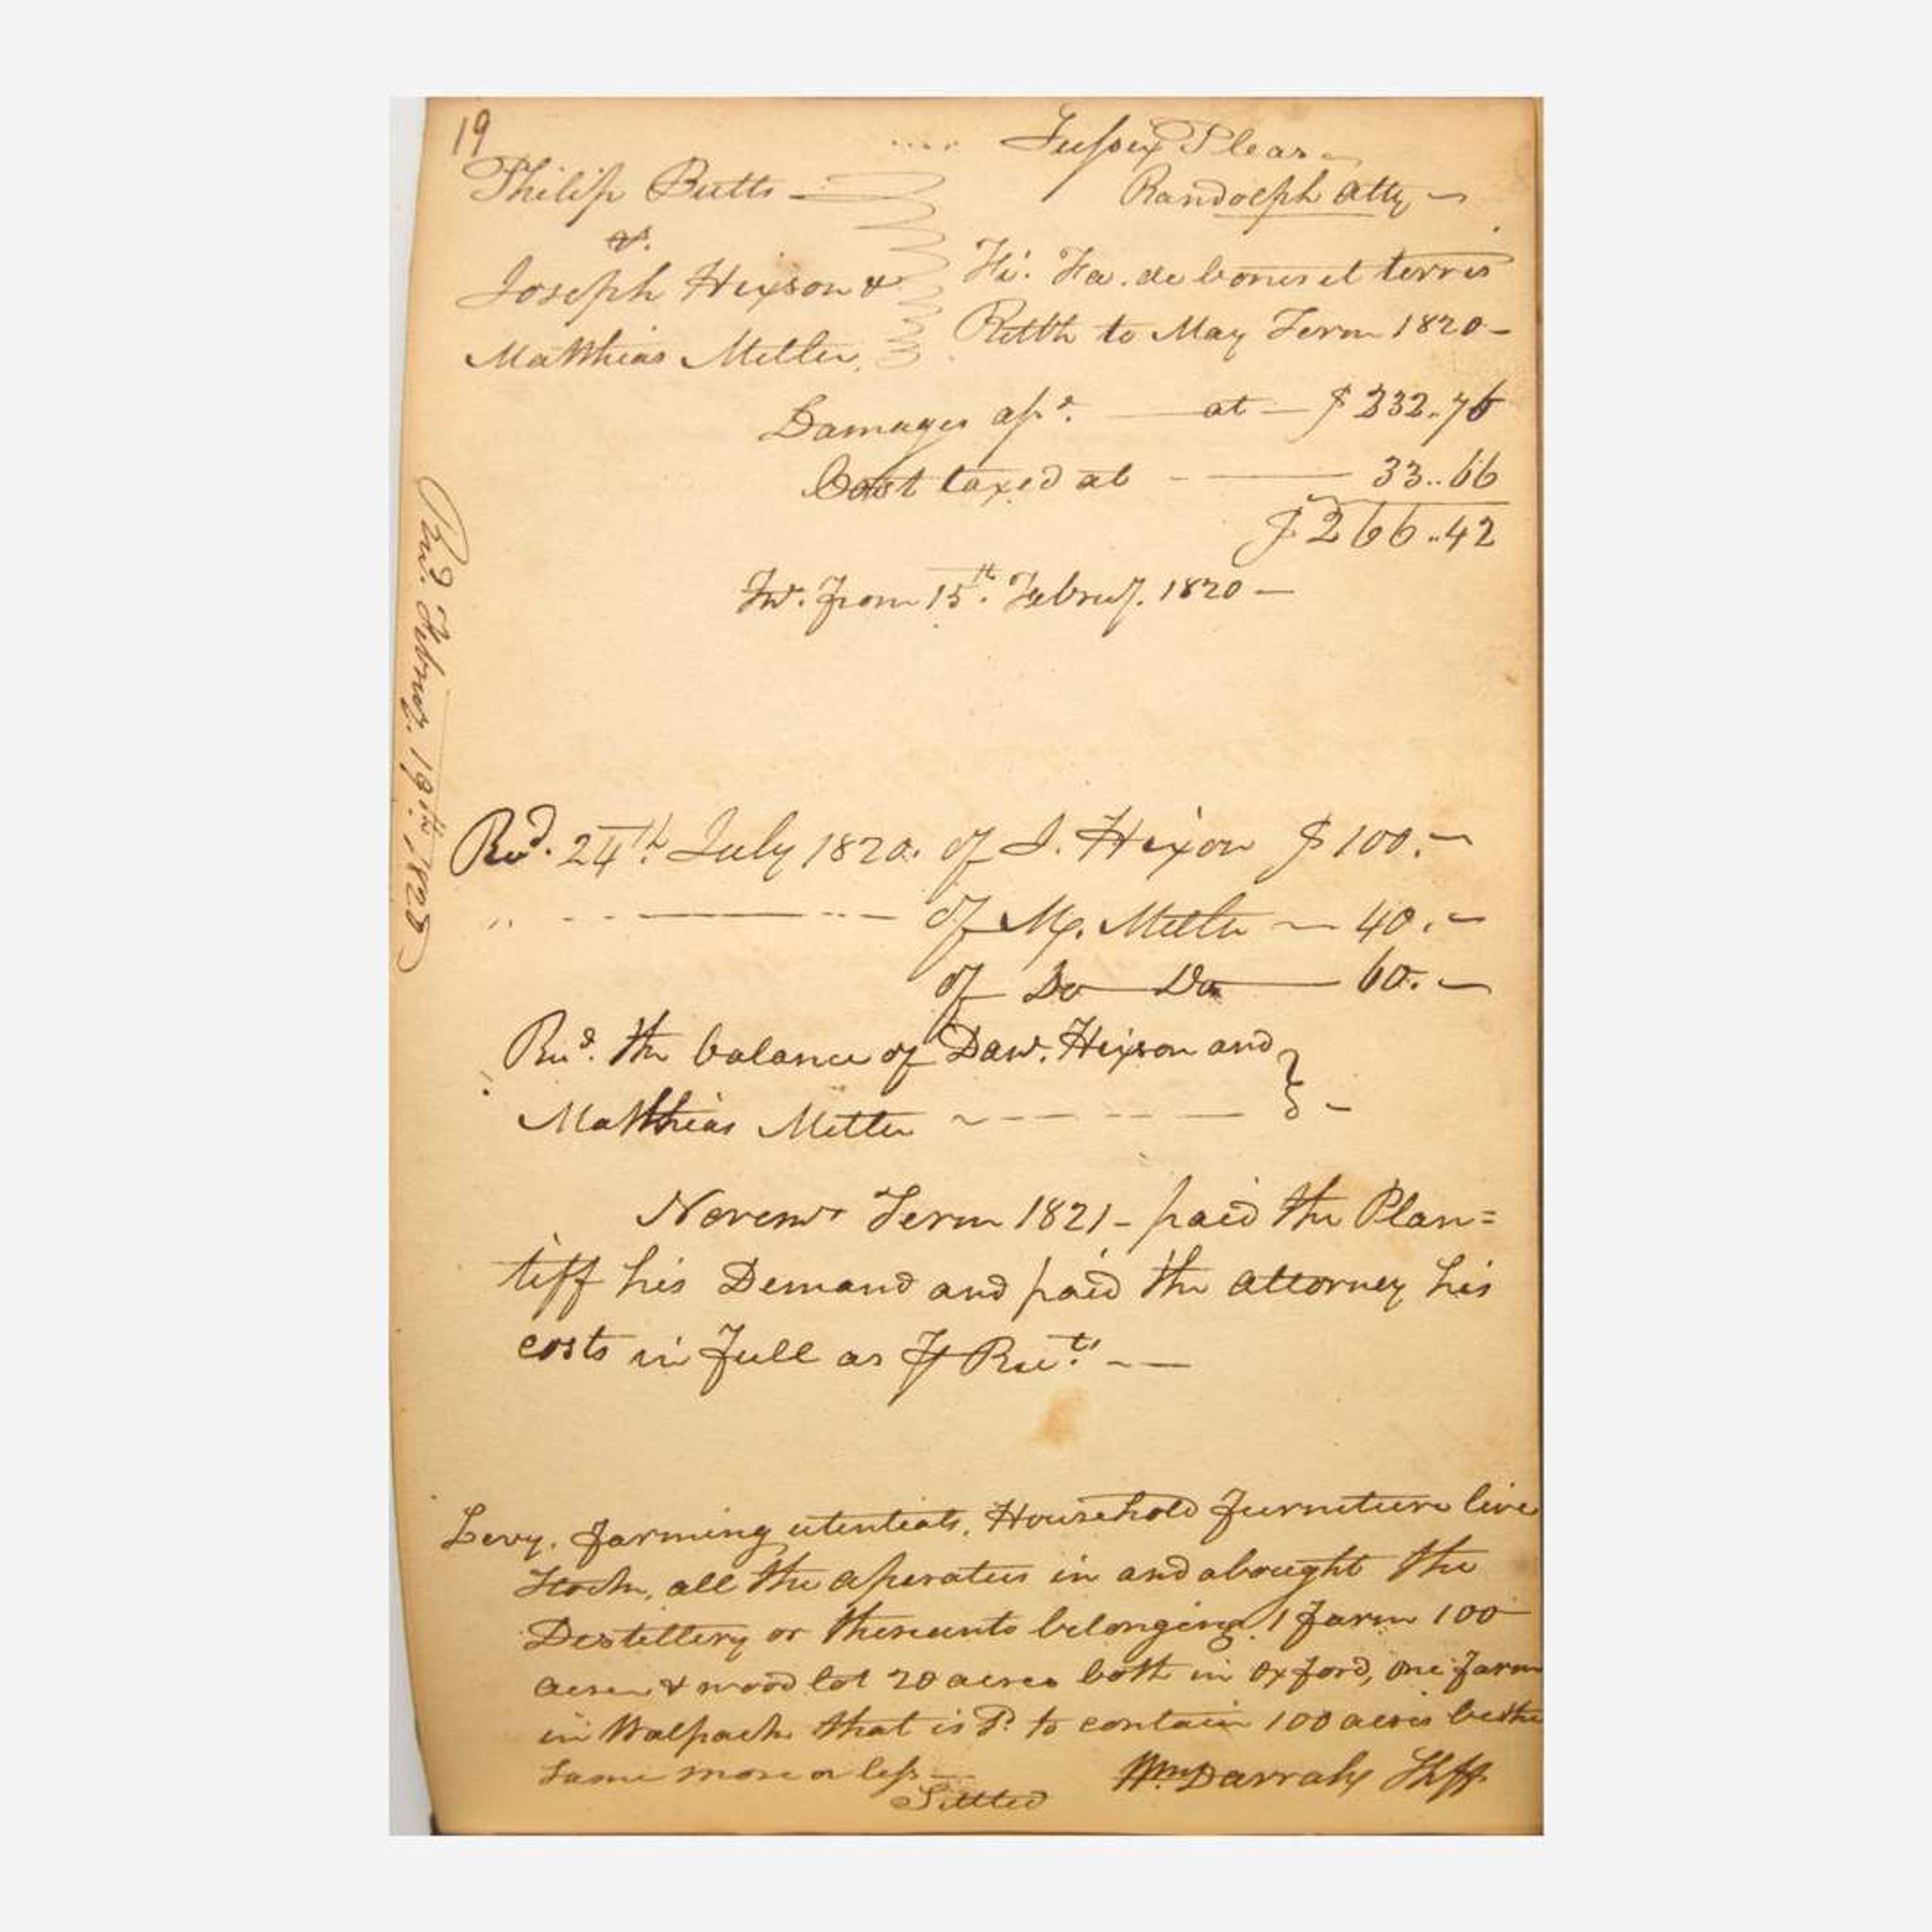 19
Sussex Pleas
Philip Butts
Randolph Atty
vs.
Joseph Hixson &
Fi. Fa. de bonis et terris
Matthias Mettler
Retbl to May Term 1820
Damages assd. at $232.76
Cost taxed at 33..66
$266..42
Int. from 15th. Februy. 1820
Recd. Februy. 19th. 1820
Recd. 24th. July 1820. of J. Hixon $100.
" of M. Mettler 40.
of Do Do 60.
Recd. the balance of Danl. Hixson and
Matthias Mettler
Novemr Term 1821 - paid the Plan=
tiff his Demand and paid the attorney his
costs in full as pr Rect.
Levy. farming utentials, Household furniture live
Stock, all the aperatus in and abought the
Destillery or thereunto belonging 1 farm 100
acres & wood lot 20 acres both in Oxford, One farm
in Walpack that is Sd. to contain 100 acres be the
same more or less
Settled
Wm Darrah Shff